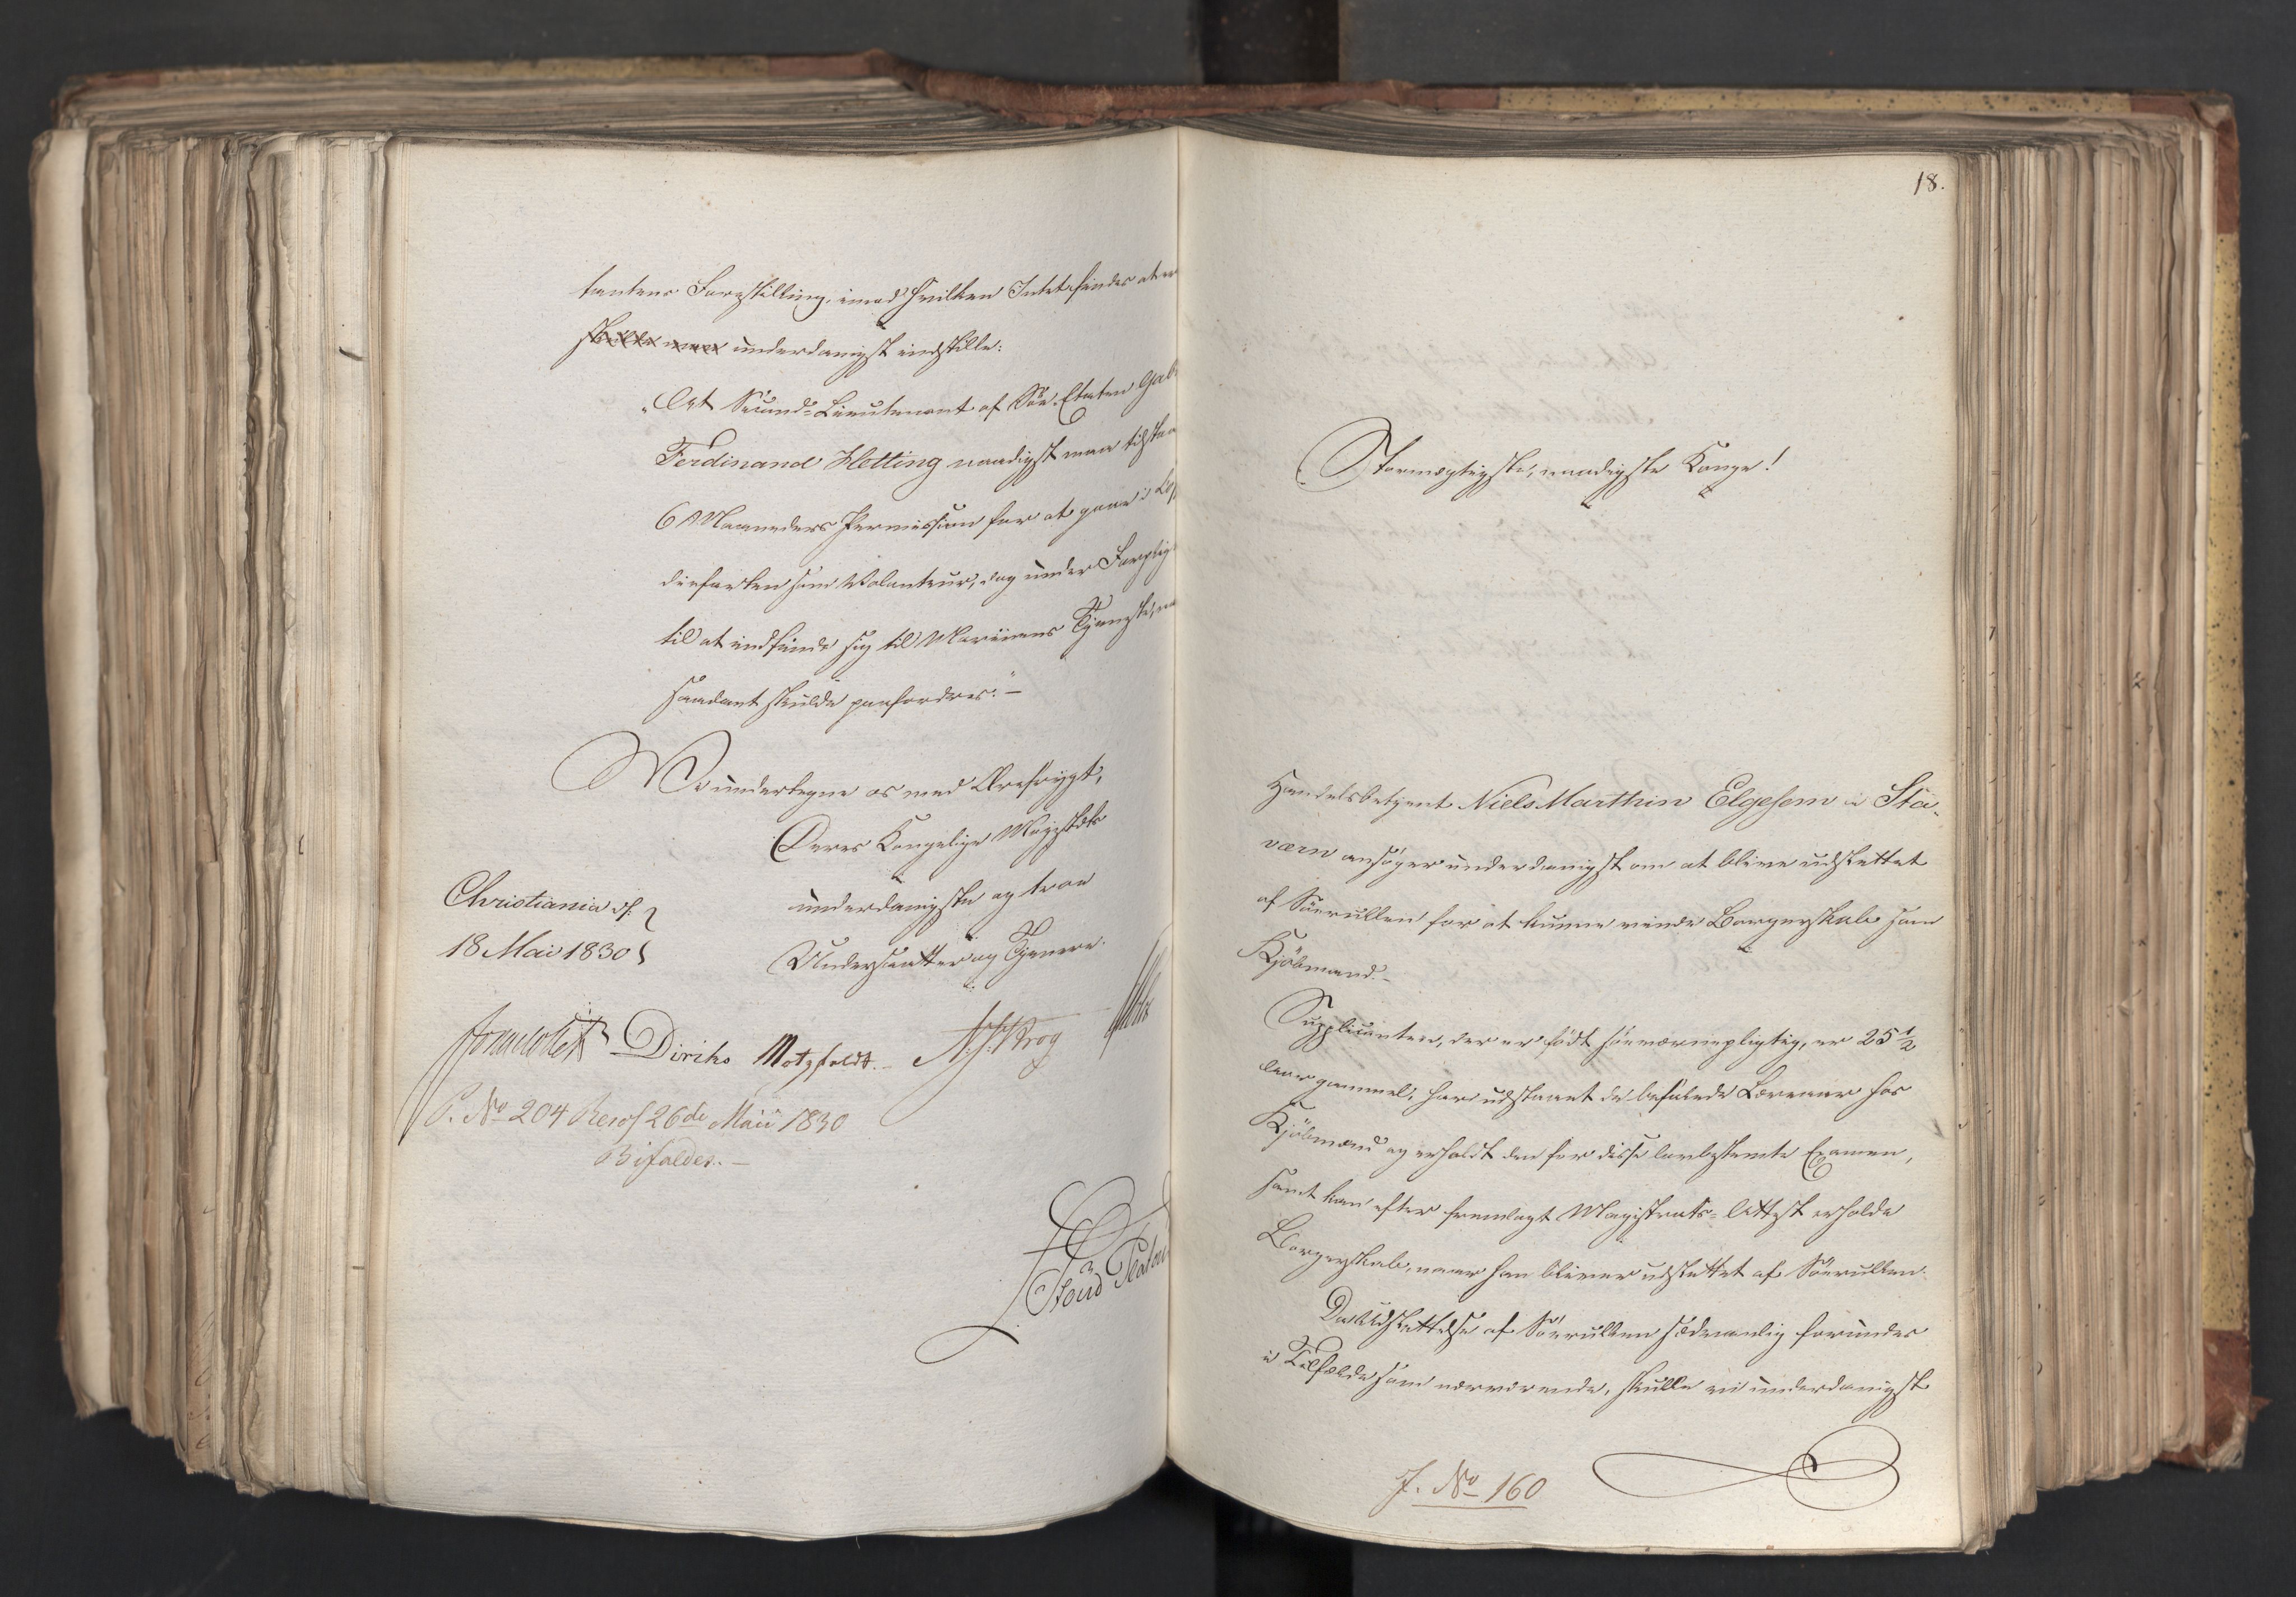 tantens Forestilling, imod hvilken Intet findes at er
skulde man underdanigst indstille:
"At Second-Lieutenant af Söe-Etaten Gab
Ferdinand Hetting naadigst maa tilstaa
6 Maaneders Permission for at gaae i Co
diefarten som Volonteur, dog under Forplig
til at indfinde sig til Marinens Tjeneste, na
saadant skulde paafordres." —
Vi undertegne os med Ærefrygt,
Deres Kongelige Majestæts
underdanigste og troe
Undersaatter og Tjenere.
Christiania d.
18 Mai 1830
Diriks Motzfeldt. Krog
P. No 204 Resol 26de Maii 1830
Bifaldes. —
18.
Stormægtigste, naadigste Konge!
Handelsbetjent Niels Marthin Elgesem i Sta-
værn ansöger underdanigst om at blive udslettet
af Söerullen for at kunne vinde Borgerskab som
Kjöbmand. —
Supplicanten, der er födt söeværnepligtig, er 25 1/2
Aar gammel, har udstaaet de befalede Læreaar hos
Kjöbmand og erholdt den for disse lovbestemte Examen,
samt kan efter fremlagt Magistrats-Attest erholde
Borgerskab, naar han bliver udslettet af Söerullen.
Da Udslettelse af Söerullen sædvanlig forundes
i Tilfælde som nærværende, skulle vi underdanigst
J. No 160